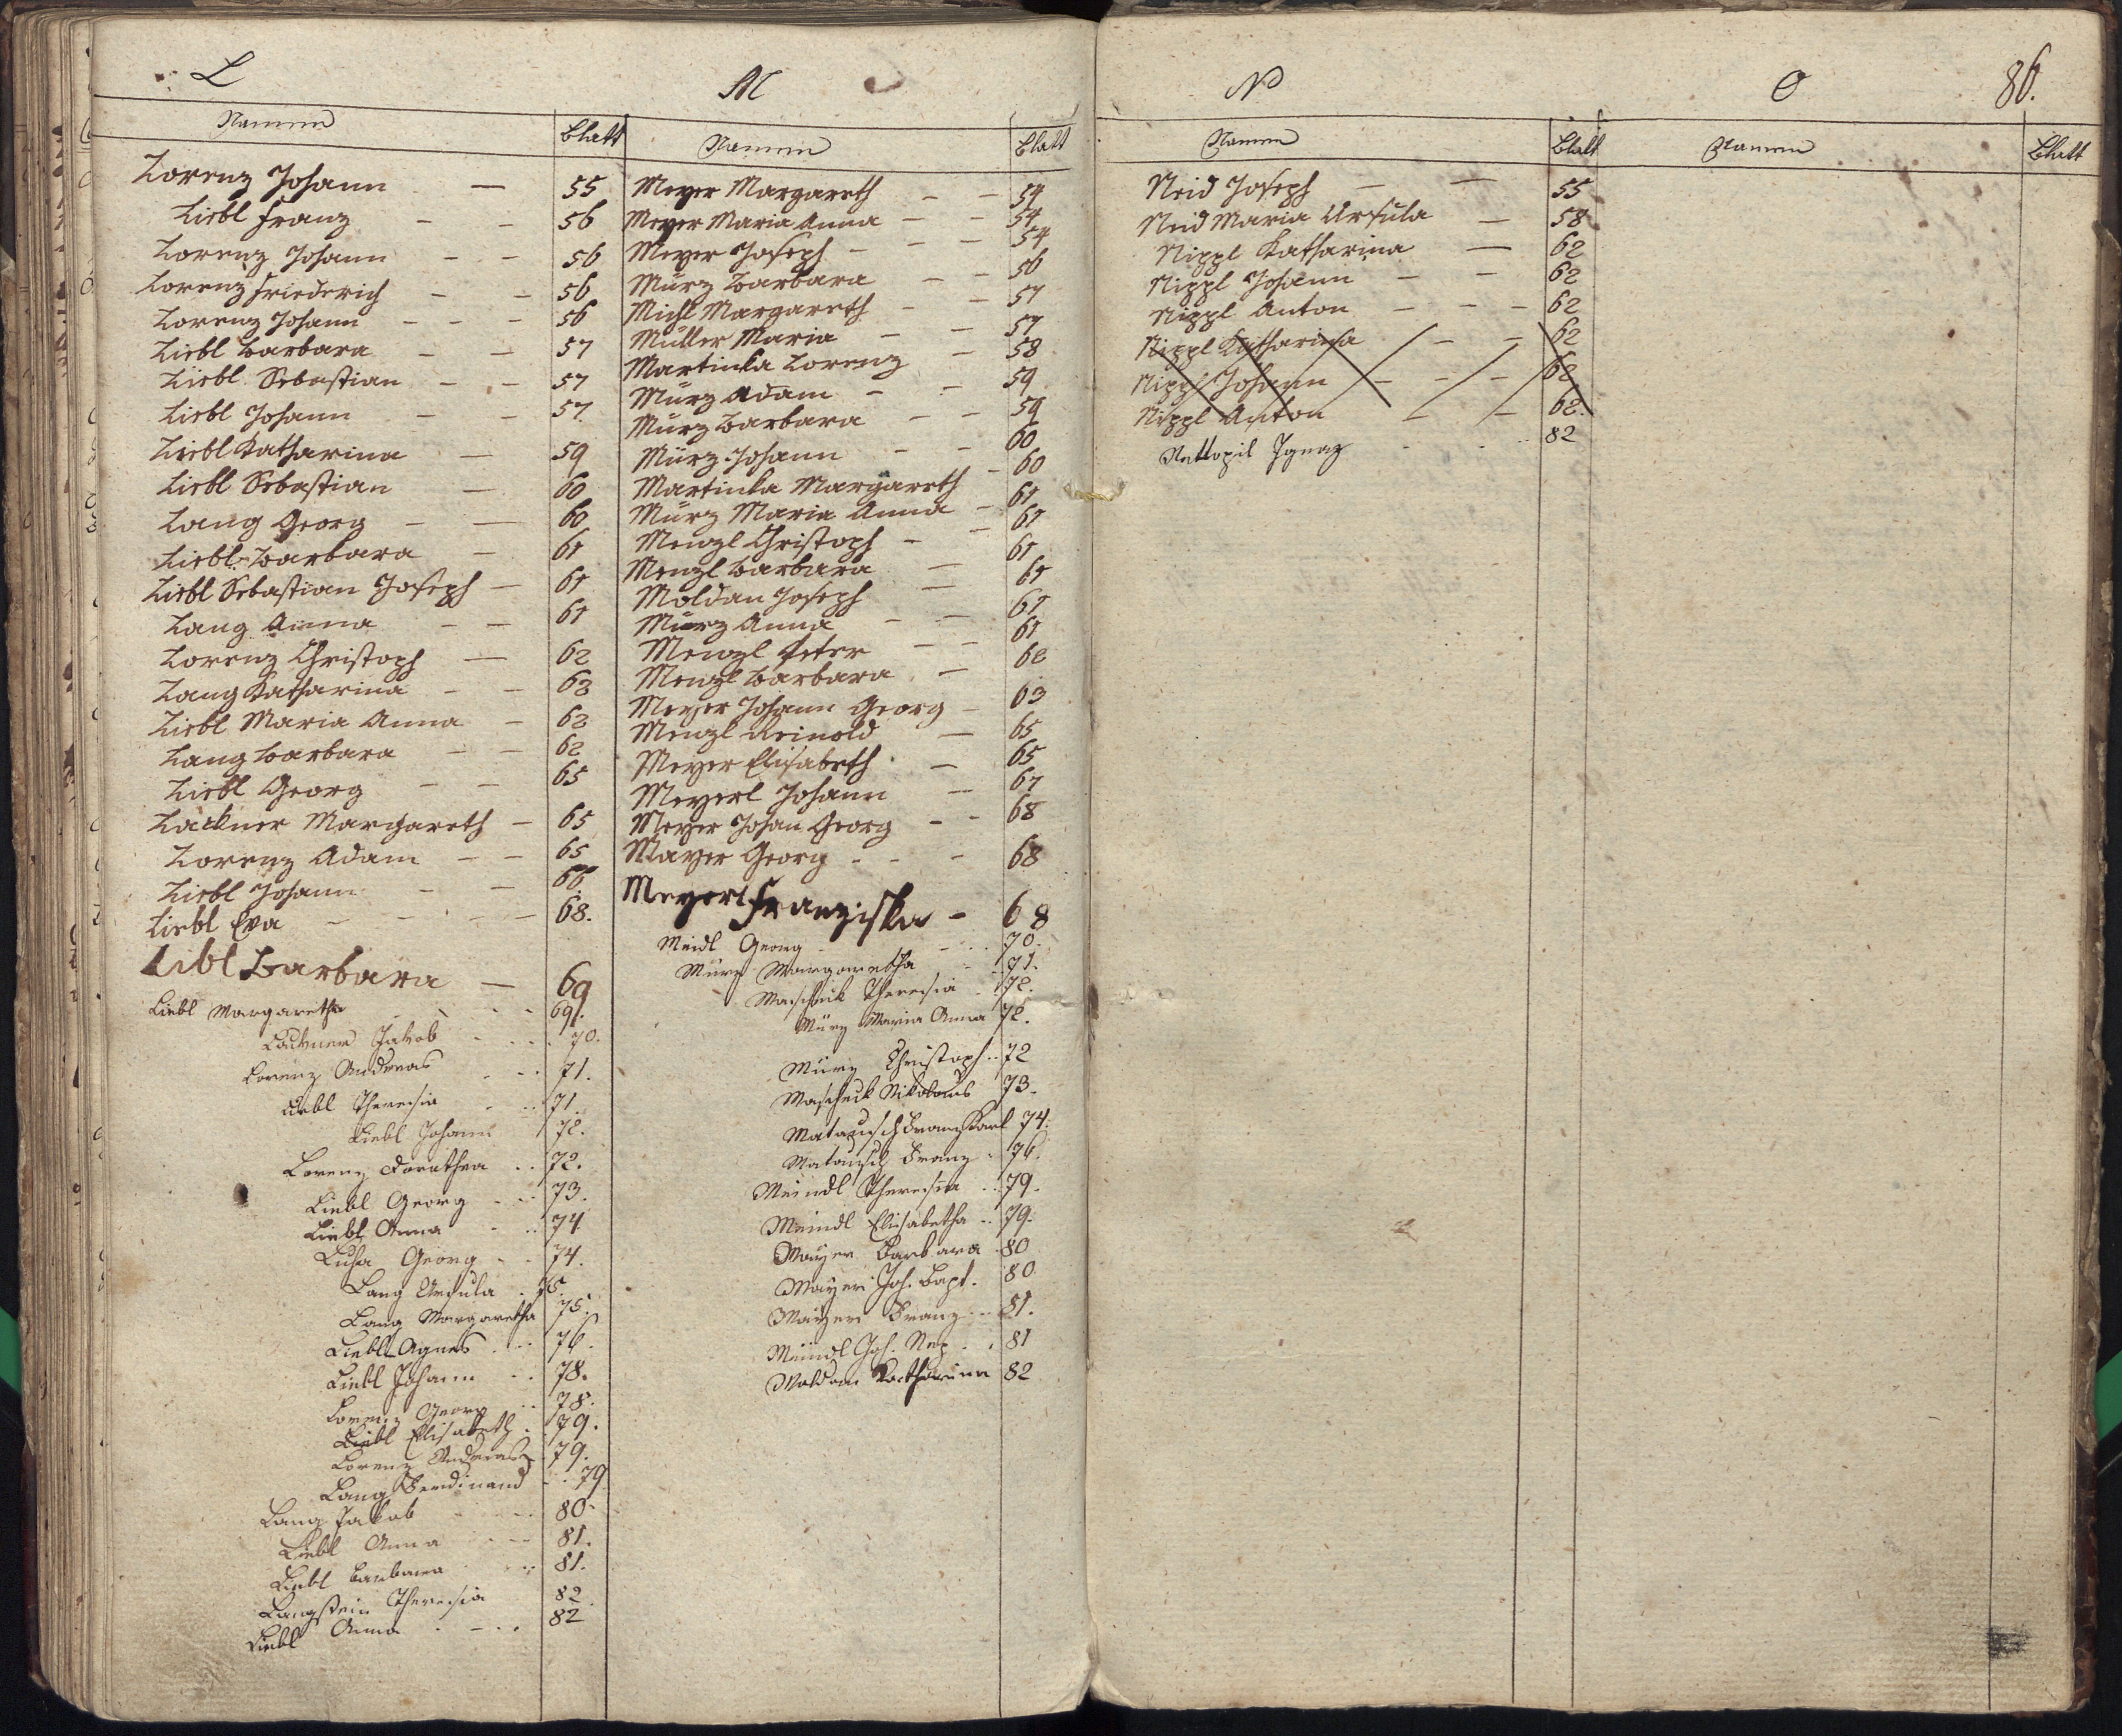 L
Namen Blatt
Lorenz Johann — 55
Liebl Franz - - 56
Lorenz Johann - - 56
Lorenz Friederich - - 56
Lorenz Johann - - - 56
Liebl Barbara - - 57
Liebl Sebastian - - 57
Liebl Johann - - 57.
Liebl Katharina — 59
Liebl Sebastian — 60
Lang Georg - — 60
Liebl Barbara — 61
Liebl Sebastian Joseph — 61
Lang Anna - — 61
Lorenz Christoph — 62
Lang Katharina - - 62
Liebl Maria Anna - 62
Lang Barbara - - 62
Liebl Georg - - 65
Lackner Margareth - 65
Lorenz Adam - - 65
Liebl Johann - - 66.
Liebl Eva - - - - 68.
Libl Barbara — 69
Liebl Margaretha - - - 69.
Lackner Jakob - - - 70.
Lorenz Andreas - - - 71.
Liebl Theresia - - - 71.
Liebl Johann 72.
Lorenz Dorothea - - 72.
Liebl Georg - - - 73.
Liebl Anna - - - 74
Luha Georg - - 74.
Lang Ursula - 75.
Lang Margaretha 75.
Liebl Agnes - - - 76.
Liebl Johann - - 78.
Lorenz Georg - - 78.
Liebl Elisabeth - 79.
Lorenz Andreas 79.
Lang Ferdinand - - 79
Lang Jakob - - - 80.
Liebl Anna - - - 81.
Liebl Barbara - - 81.
Langstein Theresia 82.
Liebl Anna - - - 82
M
Namen Blatt
Meyer Margareth - - 54
Meyer Maria Anna - - 54
Meyer Joseph - - - 54
Mürz Barbara - - 56
Michl Margareth - - 57
Müller Maria - - 57
Martinka Lorenz - 58
Mürz Adam - - 59
Mürz Barbara - - 59
Mürz Johann - - 60
Martinka Margareth - 60
Mürz Maria Anna - 61
Menzl Christoph - - 61
Menzl Barbara — 61
Moldan Joseph — 61
Mürz Anna - - 61
Menzl Peter - - 61
Menzl Barbara - 62
Meyer Johann Georg - 63
Menzl Reinold — 65
Meyer Elisabeth - 65
Meyerl Johann - 67
Meyer Johan Georg - - 68
Mayer Georg - - - 68
Meyerl Franziska - 68
Meidl Georg - - - 70.
Mürz Margaretha - - 71.
Maschek Theresia - 72.
Mürz Maria Anna 72.
Mürz Christoph - - 72
Maschek Nikolaus 73.
Matausch Franz Karl 74.
Matausch Franz - 76.
Meindl Theresia - - 79.
Meindl Elisabetha - - 79.
Mayer Barbara - 80
Mayer Joh. Bapt. 80
Mayer Franz - - - 81.
Meindl Joh. Nep. - - 81
Moldan Katharina 82
N
Namen Blatt
Neid Joseph - — 55
Neid Maria Ursula — 58
Nippl Katharina — 62
Nippl Johann - - 62
Nippl Anton - - - 62
Nippl Katharina - - 62
Nippl Johann - - - 62
Nippl Anton - - 62.
Nettopil Ignaz - - - 82
O 86.
Namen Blatt